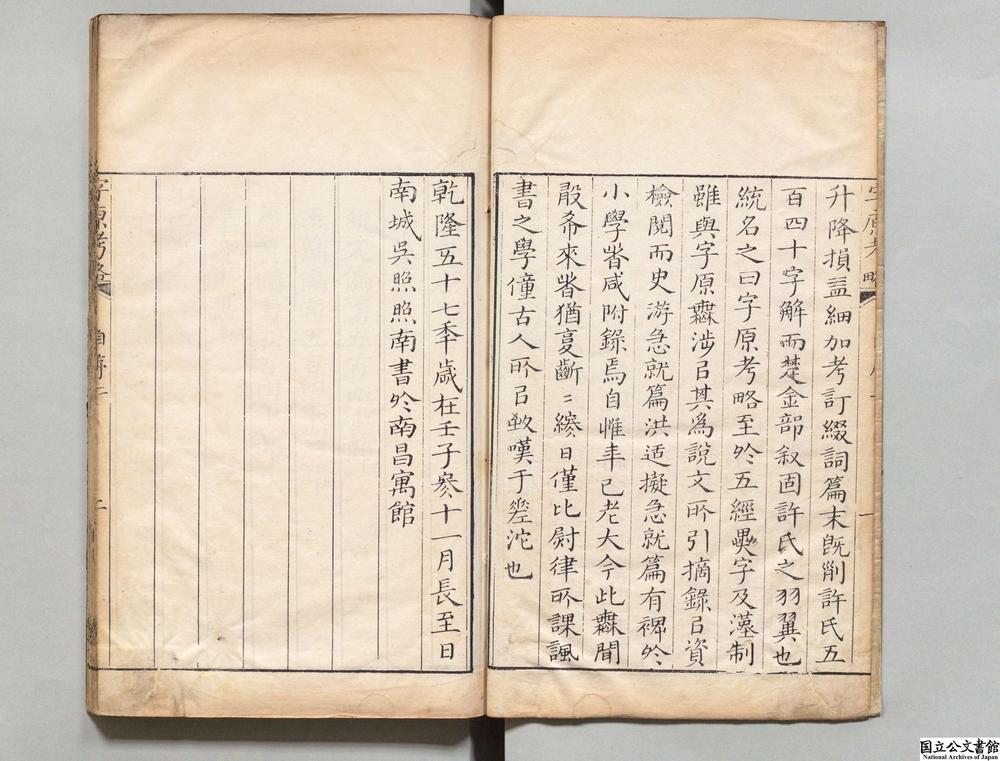 升降損益細加考訂綴詞篇末既削許氏五
百四十字解而楚金部叙固許氏之羽翼也
統名之曰字原考略至於五經異字及漢制
雖與字原霖涉㠯其為說文所引摘錄㠯資
檢閱而史游急就篇洪适擬急就篇有裨於
小學者咸附錄焉自惟年已老大今此霖聞
殷希來者猶㪅齗〻緣日僅比尉律所課諷
書之學僮古人所㠯致嘆于蹉沱也
乾隆五十七秊歲在壬子冬十一月長至日
南城吳照照南書於南昌寓館
字原考略
自序
二
国立公文書館
National Archives of Japan